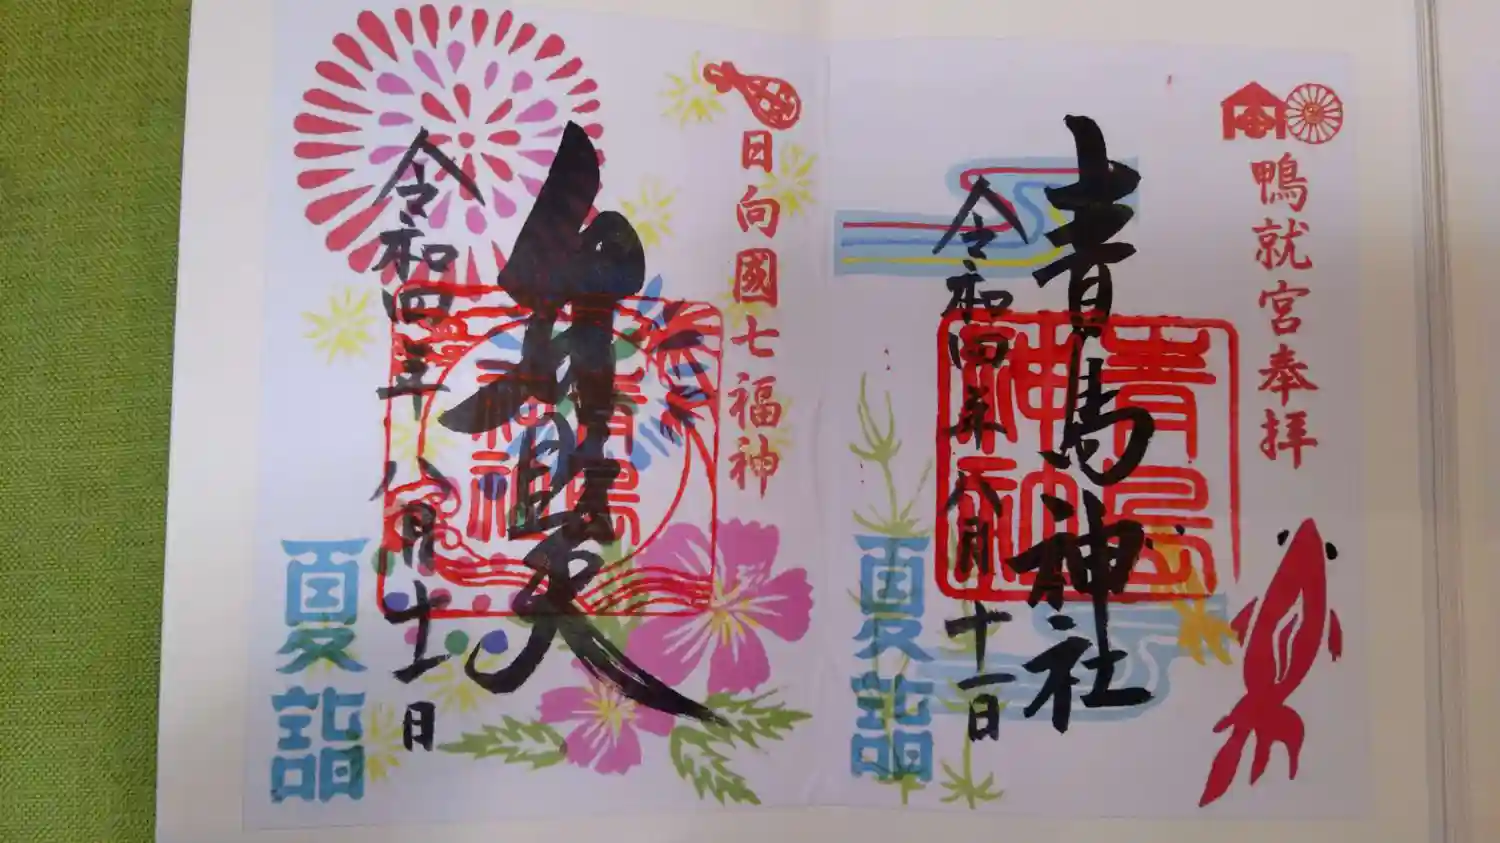 鴨就宮奉拝
青島神社
青島
神社
令和四年八月十一日
夏詣
日向國七福神
弁財天
青島
神社
令和四年八月十一日
夏詣